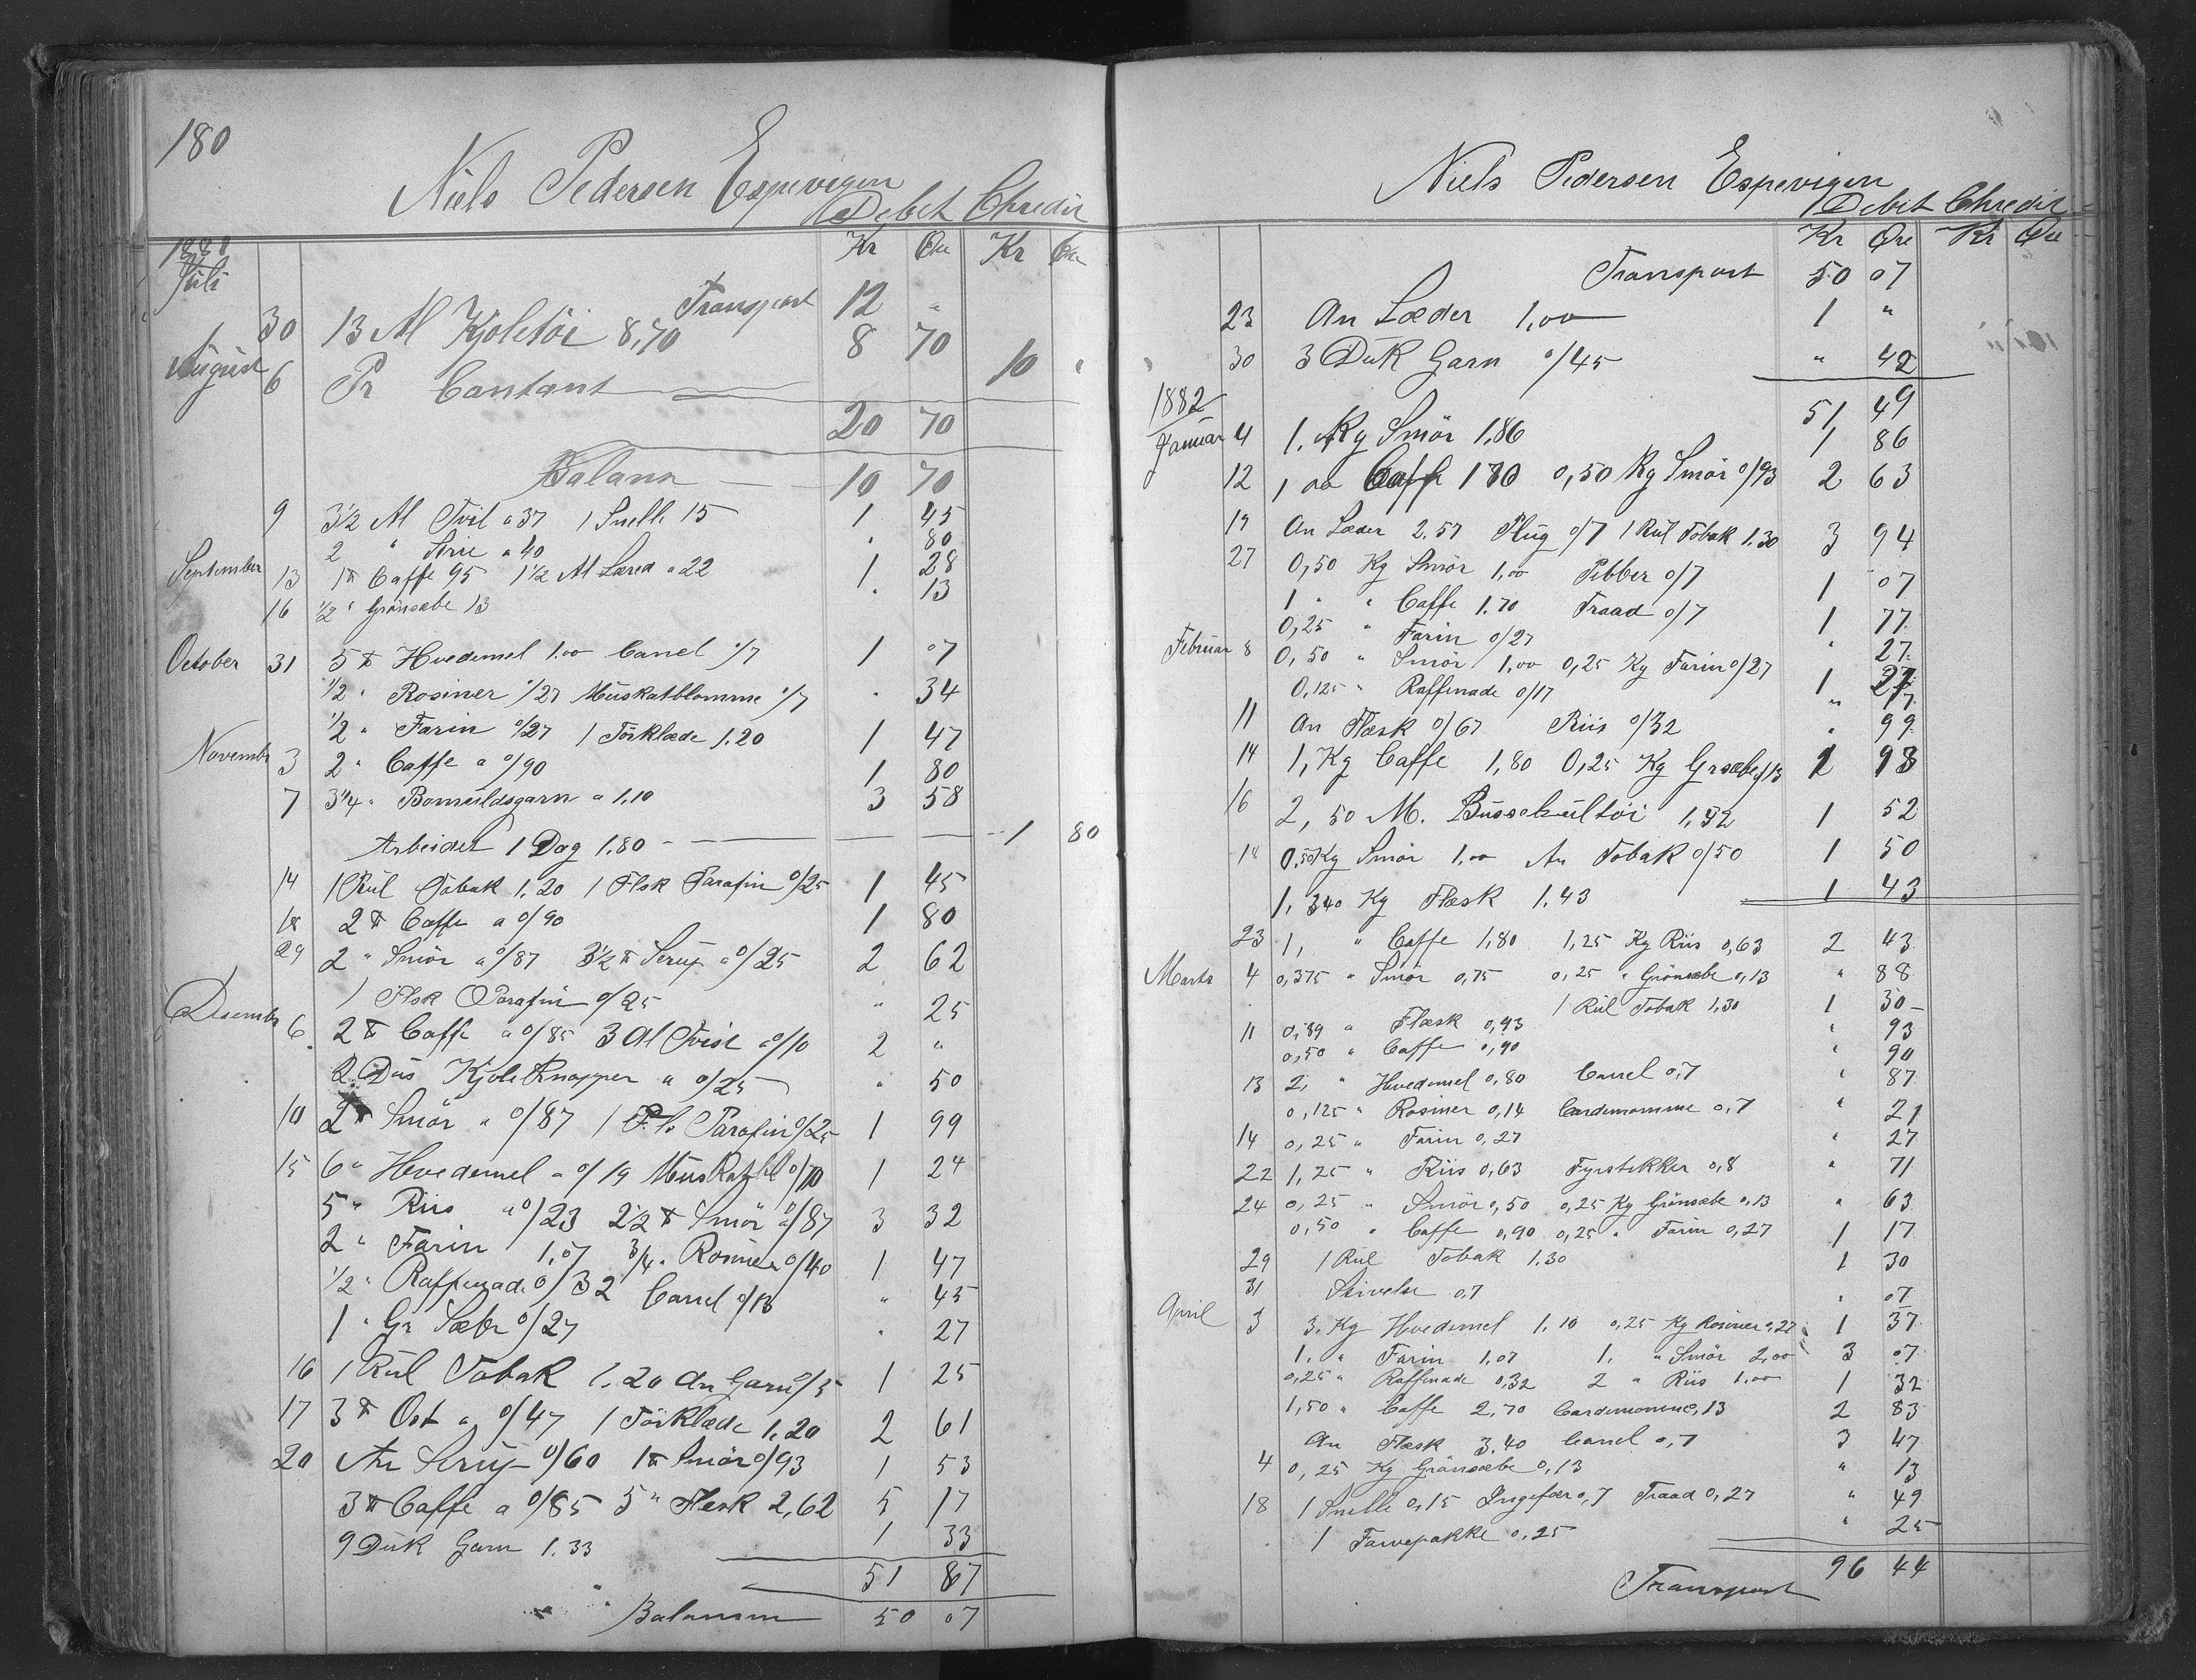 180
Niels Pedersen Espevigen
Debet Chredit
Kr Øre Kr Øre
Juli
Transport 12 "
30 13 Al Kjoletöi 8,70 8 70
August 6 Pr Contant 10 "
20 70
Balans 10 70
9 3½ Al Tvil a 37 1 Snelle 15 1 45
2 " Strie a 40 " 80
September 13 1 ℔ Caffe 95 1½ Al Læred a 22 1 28
16 ½ " Grönsæbe 13 " 13
October 31 5 ℔ Hvedemel 1.00 Canel 0/7 1 07
½ " Rosiner 0/27 Muskatblomme 0/7 " 34
½ " Farin 0/27 1 Törklæde 1.20 1 47
Novembr 3 2 " Caffe a 0/90 1 80
7 3¼ " Bomuldsgarn a 1,10 3 58
Arbeidet 1 Dag 1.80 1 80
14 1 Rul Tobak 1.20 1 Flsk Parafin 0/25 1 45
18 2 ℔ Caffe a 0/90 1 80
29 2 " Smör a 0/87 3½ ℔ Sirup a 0/25 2 62
1 Flsk Parafin 0/25 " 25
Desembr 6 2 ℔ Caffe a 0/85 3 Al Tvist a 0/10 2 "
2 Dus Kjoleknapper a 0/25 " 50
10 2 ℔ Smör a 0/87 1 Fls Parafin 0/25 1 99
15 6 " Hvedemel a 0/19 Muskatbl 0/10 1 24
5 " Riis a 0/23 2½ ℔ Smör a 0/87 3 32
2 " Farin 1.07 ¾ " Rosiner 0/40 1 47
½ " Raffenade 0/32 Canel 0/13 " 45
1 " Gr Sæbe 0/27 " 27
16 1 Rul Tobak 1.20 An Garn 0/5 1 25
17 3 ℔ Ost a 0/47 1 Törklæde 1.20 2 61
20 An Sirup 0/60 1 ℔ Smör 0/93 1 53
3 ℔ Caffe a 0/85 5 " Flesk 2,62 5 17
9 Duk Garn 1.33 1 33
51 87
Balansen 50 07
Niels Pedersen Espevigen
Debet Chredit
Kr Øre Kr Øre
Transport 50 07
23 An Læder 1,00 1 "
30 3 Duk Garn 0/45 " 42
51 49
1882
Januar 4 1, Kg Smör 1.86 1 86
12 1 00 Caffe 1 80 0,50 Kg Smör 0/93 2 63
19 An Læder 2.57 Plug 0/7 1 Rul Tobak 1.30 3 94
27 0,50 Kg Smör 1,00 Pebber 0/7 1 07
1 " " Caffe 1.70 Traad 0/7 1 77
0,25 " Farin 0/27 " 27
Februar 8 0,50 " Smör 1,00 0,25 Kg Farin 0/27 1 27
0,125 " Raffenade 0/17 " 17
11 An Flæsk 0/67 Riis 0/32 " 99
14 1, Kg Caffe 1,80 0,25 Kg Grsæbe 0/13 1 93
16 2,50 M. Busserultöi 1,52 1 52
18 0.50 Kg Smör 1.00 An Tobak 0/50 1 50
1,340 Kg Flæsk 1.43 1 43
23 1, " Caffe 1,80 1,25 Kg Riis 0,63 2 43
Marts 4 0,375 " Smör 0,75 0,25 " Grönsæbe 0,13 " 88
1 Rul Tobak 1,30 1 30
11 0,89 " Flæsk 0,93 " 93
0,50 " Caffe 0,90 " 90
13 2, " Hvedemel 0,80 Canel 0,7 " 87
0,125 " Rosiner 0,14 Cardemomme 0,7 " 21
14 0,25 " Farin 0,27 " 27
22 1,25 " Riis 0,63 Fyrstekker 0,8 " 71
24 0,25 " Smör 0,50 0,25 Kg Grönsæbe 0,13 " 63
0,50 " Caffe 0,90 0,25 " Farin 0,27 1 17
29 1 Rul Tobak 1.30 1 30
31 Stivelse 0,7 " 07
April 3 3. Kg Hvedemel 1.10 0,25 Kg Rosiner 0,27 1 37
1. " Farin 1.07 1. " Smör 2,00 3 07
0,25 " Raffenade 0,32 2 " Riis 1.00 1 32
1,50 " Caffe 2,70 Cardemomme 0,13 2 83
An Flæsk 3.40 Canel 0,7 3 47
4 0,25 Kg Grönsæbe 0,13 " 13
18 1 Snelle 0,15 Ingefær 0,7 Traad 0,27 " 49
1 Farvepakke 0,25 " 25
Transport 96 44